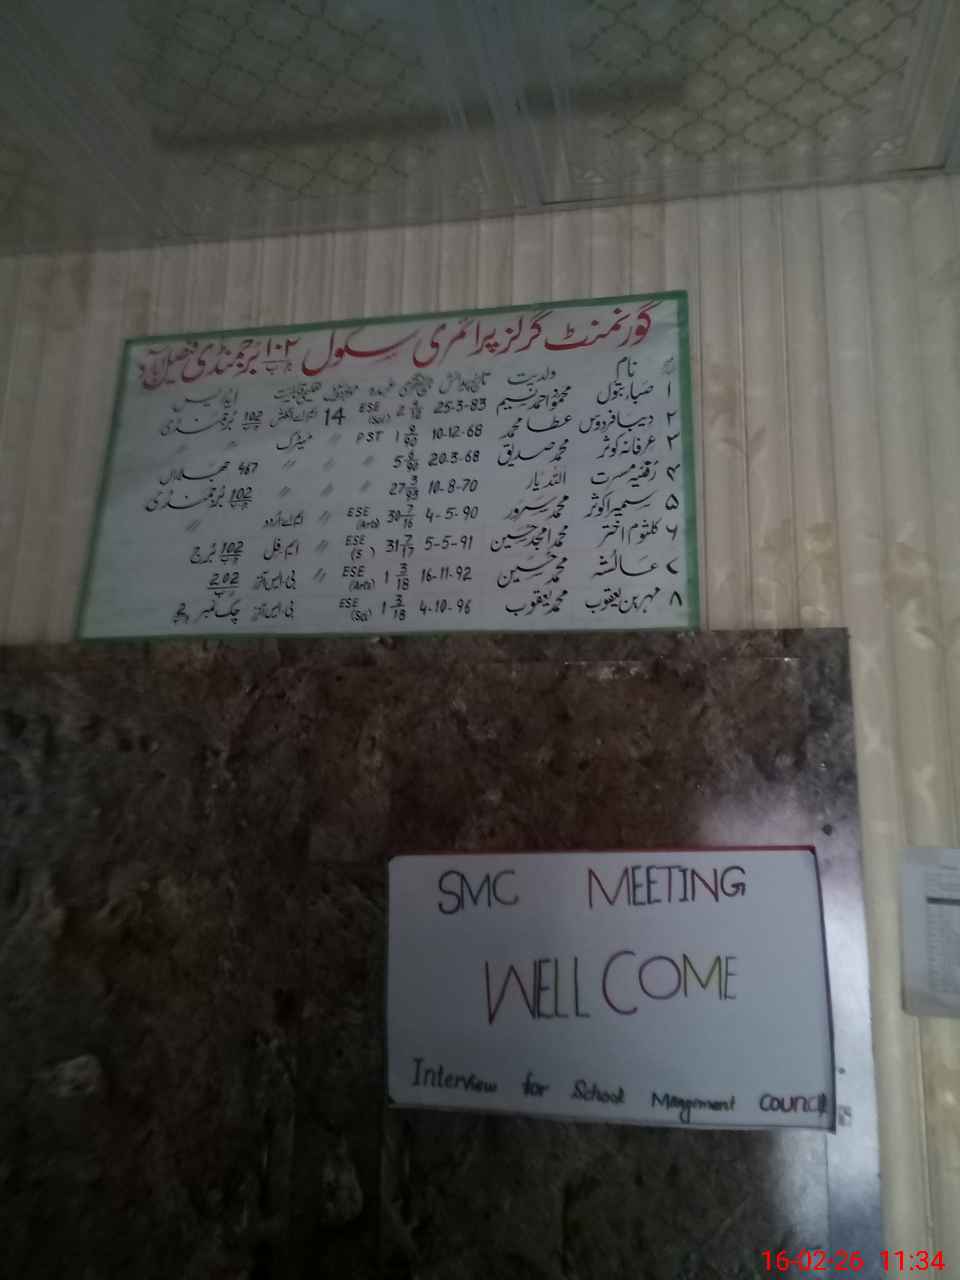 گورنمنٹ گرلز پرائمری سکول ۱۰۲ ر ب بُرجمنڈی فیصل آباد
نام ولدیت تاریخ پیدائش عہدہ تعلیمی قابلیت ایڈریس
۱ صباء بتول محمود احمد نسیم 25-3-83 2 ESE (Sci) 14 102 ر ب بُرجمنڈی
۲ دیبا فردوس عطا محمد 10-12-68 1 9/90 PST 〃 میٹرک 〃
۳ عرفانہ کوثر محمد صدیق 20-3-68 5 9/90 〃 〃 〃 467
۴ رُقیہ مسرت اللہ یار 10-8-70 27 3/93 〃 〃 〃 102 ر ب بُرجمنڈی
۵ سمیرا کوثر محمد سرور 4-5-90 30 7/16 ESE (Arts) 〃 ایم اے اُردو 〃
۶ کلثوم اختر محمد امجد حسین 5-5-91 31 7/17 ESE (S ) 〃 ایم فل 102 ر ب بُرج
۷ عائشہ محمد حسین 16-11-92 1 3/18 ESE (Arts) 〃 بی ایس آنرز 202 ر ب
۸ مہرین یعقوب محمد یعقوب 4-10-96 1 3/18 ESE (Sci) بی ایس آنرز چک نمبر
SMC MEETING
WELL COME
Interview for School Mangement COUNCIL
16-02-26 11:34